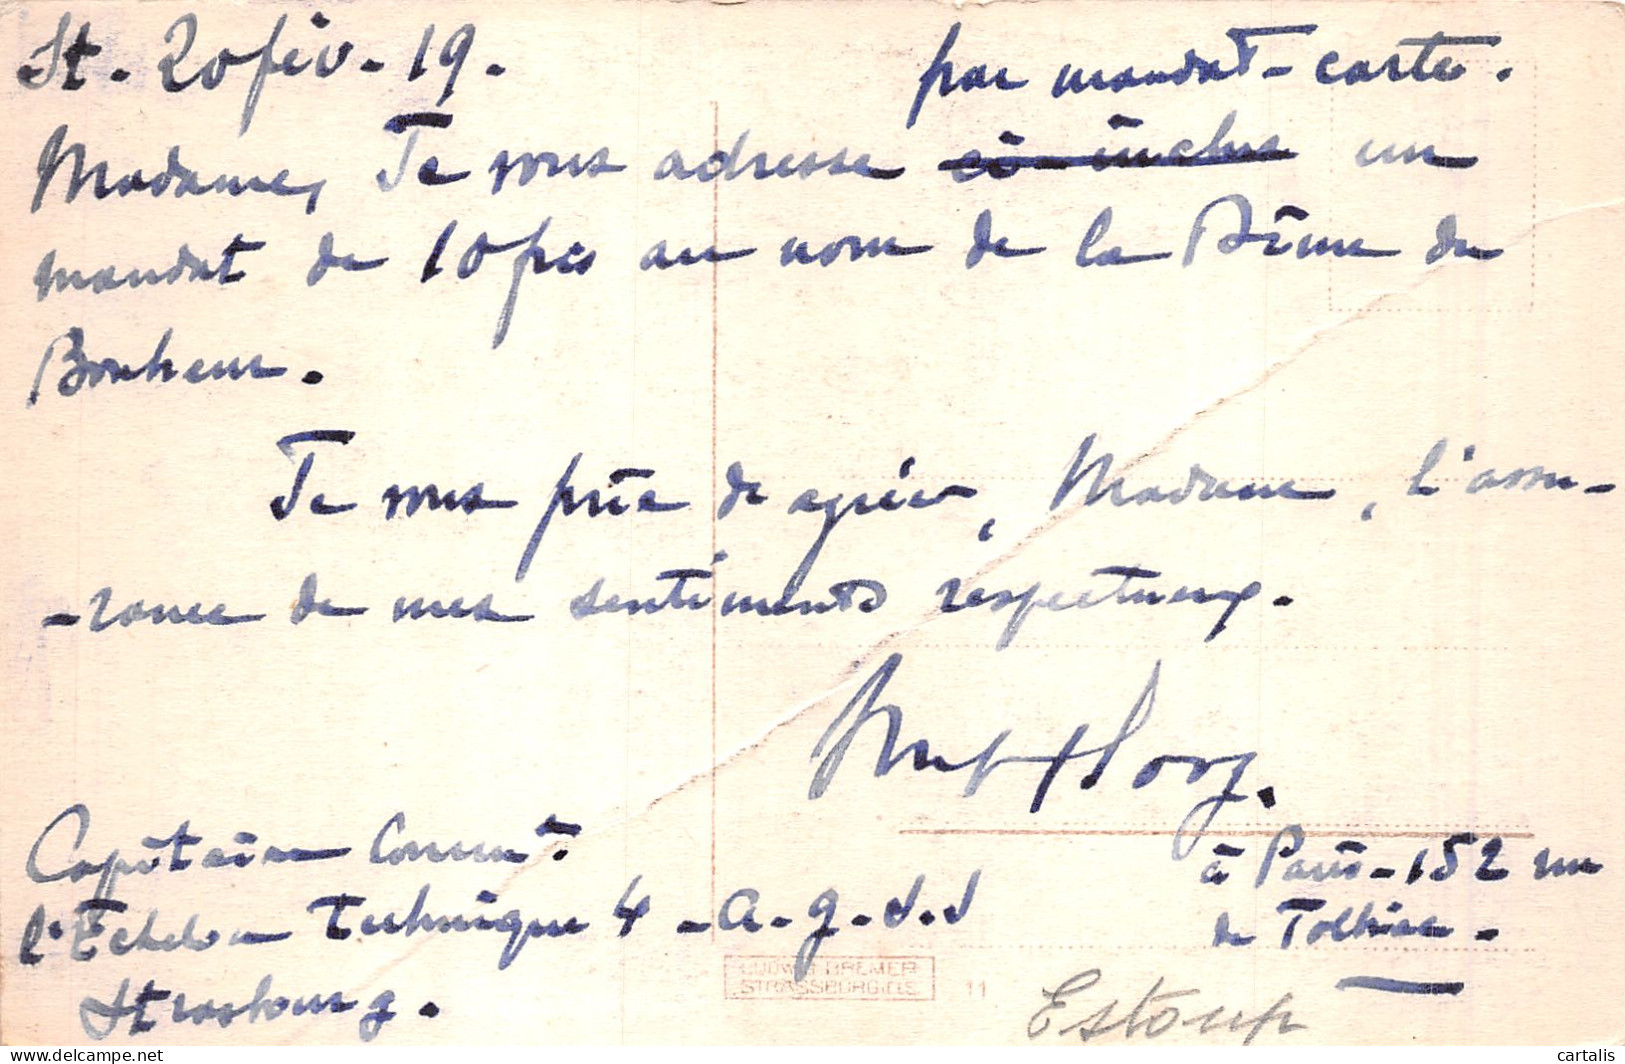 St. 20 fév. 19.
par mandat-carte.
Madame, Je vous adresse ci-inclus un
mandat de 10 frcs au nom de la Prime du
Bonheur.
Je vous prie de agréer, Madame, l'assu-
-rance de mes sentiments respectueux.
Capitaine Commt.
à Paris - 152 rue
l'Echelon Technique 4 - a - g -
de Tolbiac -
Strasbourg.
LUDWIG BREMER
STRASSBURG i.ELS
11
Estoup
cartalis delcampe.net